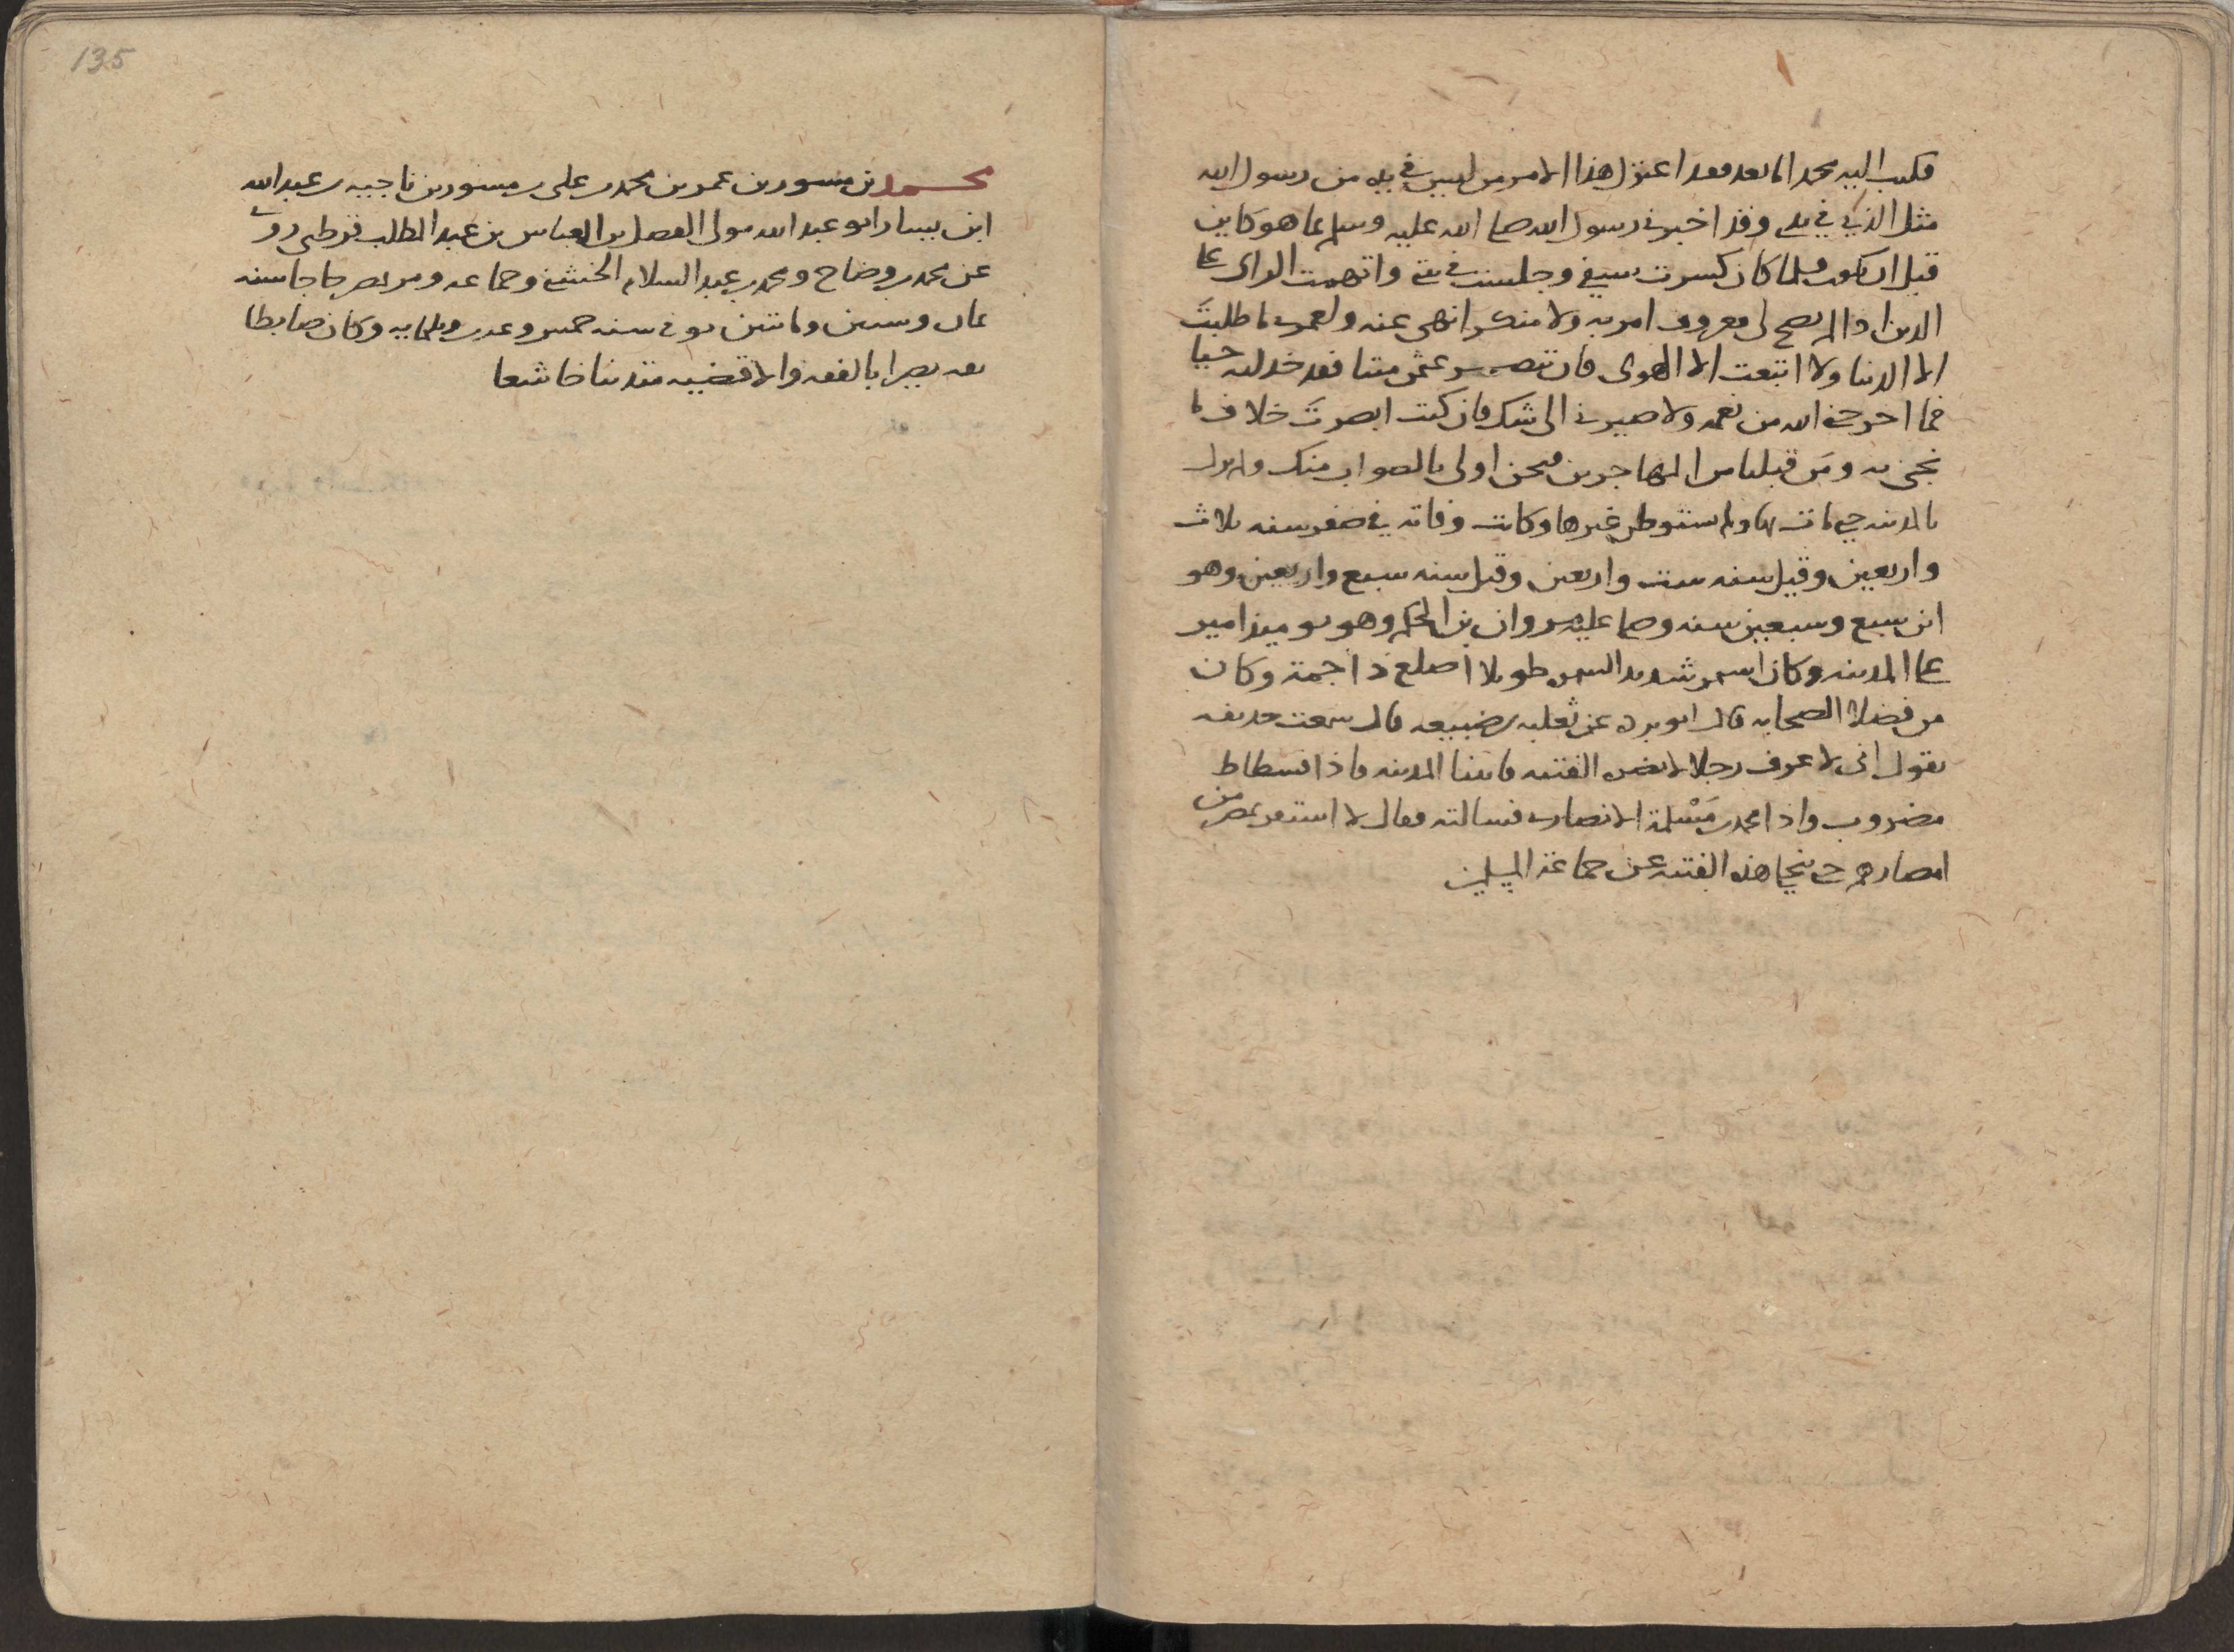 فكتب اليه محمد اما بعد فقد اعتزل هذا الامر من ليس في يده من رسول الله
مثل الذي في يدي وقد اخبرني رسول الله صلى الله عليه وسلم بما هو كاين
قبل ان يكون فلما كان كسرت سيفي وجلست في بيتي واتهمت الراى على
الدين اذا لم يصح لى معروف امر به ولا منكر انهى عنه ولعمرى ما طلبتَ
الا الدنيا ولا اتبعت الا الهوى فان تنصر عثمن ميتا فقد خذلته حيا
فما اخرجني الله من نعمه ولا صيرني الى شك فان كنت ابصرتَ خلاف ما
نحن به ومَن قبلنا من المهاجرين فنحن اولى بالصواب منك ولم يزل
بالمدينه حتى مات بها ولم يستوطن غيرها وكانت وفاته في صفر سنه ثلاث
واربعين وقيل سنه ست واربعين وقيل سنه سبع واربعين وهو
ابن سبع وسبعين سنه وصلى عليه مروان بن الحكم وهو يوميذ امير
على المدينه وكان اسمر شديد السمره طويلا اصلع ذا جمة وكان
من فضلا الصحابه قال ابو برده عن ثعلبه بن ضبيعه قال سمعت حذيفه
يقول انى لاعرف رجلا لا تضره الفتنه فاتينا المدينه فاذا فسطاط
مضروب واذا محمد بن مَسْلمة الانصارى فسالته فقال لا استقر بمصر من
امصارهم حتى تنجلى هذه الفتنه عن جماعة المسلمين
135
محمد بن مسور بن عمر بن محمد بن على بن مسور بن ناجيه بن عبد الله
ابن يسار ابو عبد الله مولى الفضل بن العباس بن عبد المطلب قرطبى روى
عن محمد بن وضاح ومحمد بن عبد السلام الخشني وجماعه ومر بمصر حاجا سنه
ثمان وستين ومائتين توفي سنه خمس وعشرين وثلثمايه وكان ضابطا
ثقه بصيرا بالفقه والاقضيه متدينا خاشعا